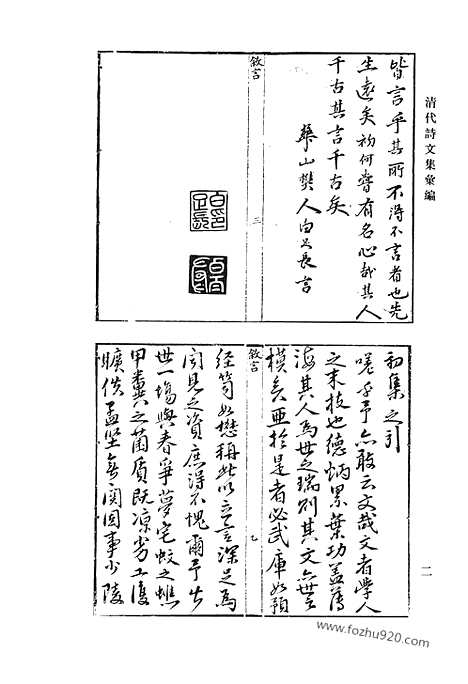 清代詩文集彙編
皆言乎其所不得不言者也先
生遠矣初何嘗有名心哉其人
千古其言千古矣
華山樊人白足長言
敘言
三
初集之引
嗟乎予亦敢云文哉文者學人
之末技也德炳累葉功蓋薄
海其人為世之瑞則其文亦世之
模矣亞於是者必武庫如預
敘言
經笥如懋稱此以立言深足為
聞見之資庶得不愧爾予出
世一場與春爭夢宅蚊之
甲糞之菌質既凉劣工復
曠佚孟堅無関因事少陵
二
www.fozhu920.com